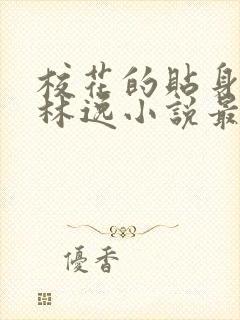 校花的貼身
林逸小說最
優香